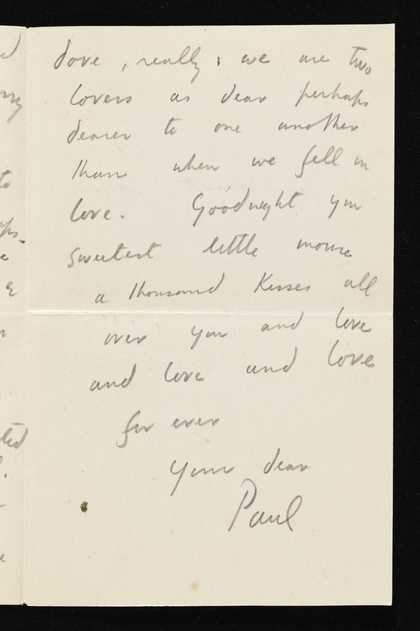 dove, really, we are two
lovers as dear perhaps
dearer to one another
than when we fell in
love. Goodnight you
sweetest little mouse
a thousand kisses all
over you and love
and love and love
for ever
your dear
Paul